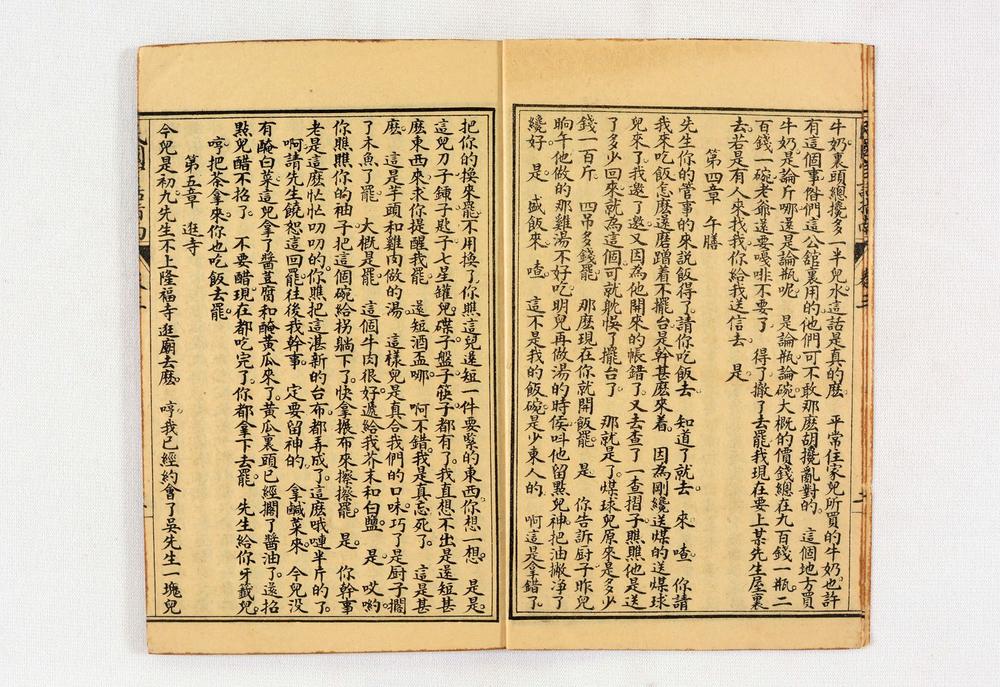 牛奶裏頭總攙多一半兒水這話是真的麽　平常住家兒所買的牛奶也許
有這個事偺們這公舘裏用的他們可不敢那麽胡攙亂對的　這個地方買
牛奶是論斤哪還是論瓶呢　是論瓶論碗大槪的價錢總在九百錢一瓶二
百錢一碗老爺還要嗄啡不要了　得了撤了去罷我現在要上某先生屋裏
去若是有人來找我你給我送信去　是
第四章　午膳
先生你的管事的來說飯得了請你吃飯去　知道了就去　來　喳　你請
我來吃飯怎麽還磨蹭着不擺台是幹甚麽來着　因為剛纔送煤的送煤球
兒來了我邀了又邀又因為他開來的帳錯了又去查了一查摺子瞧瞧他是送
了多少回來就為這個可就躭悞了擺台了　那就是了煤球兒原來是多少
錢一百斤　四吊多錢罷　那麽現在你就開飯罷　是　你告訴厨子昨兒
晌午他做的那雞湯不好吃明兒再做湯的時侯呌他留點兒神把油撇淨了
纔好　是　盛飯來　喳　這不是我的飯碗是少東人的　啊這是拿錯了
把你的換來罷不用換了你瞧這兒還短一件要緊的東西你想一想　是是
這兒刀子鍤子匙子七星罐兒碟子盤子筷子都有了我直想不出是還短甚
麽東西來求你提醒我罷　還短酒盃哪　啊不錯我是真忘死了　這是甚
麽　這是芋頭和雞肉做的湯　這樣兒是真合我們的口味巧了是厨子擱
了木魚了罷　大槪是罷　這個牛肉很好遞給我芥末和白鹽　是　哎喲
你瞧瞧你的袖子把這個碗給拐躺下了快拿搌布來擦擦罷　是　你幹事
老是這麽忙忙叨叨的你瞧把這湛新的台布都弄成了這麽哦嗹半斤的了
啊請先生饒恕這回罷往後我幹事　定要留神的　拿鹹菜來　今兒没
有醃白菜這兒拿了醬荳腐和醃黃瓜來了黃瓜裏頭已經擱了醬油了還招
點兒醋不招了　不要醋現在都吃完了你都拿下去罷　先生給你牙籤兒
哼把茶拿來你也吃飯去罷
第五章　逛寺
今兒是初九先生不上隆福寺逛廟去麽　哼我已經約會了吳先生一塊兒